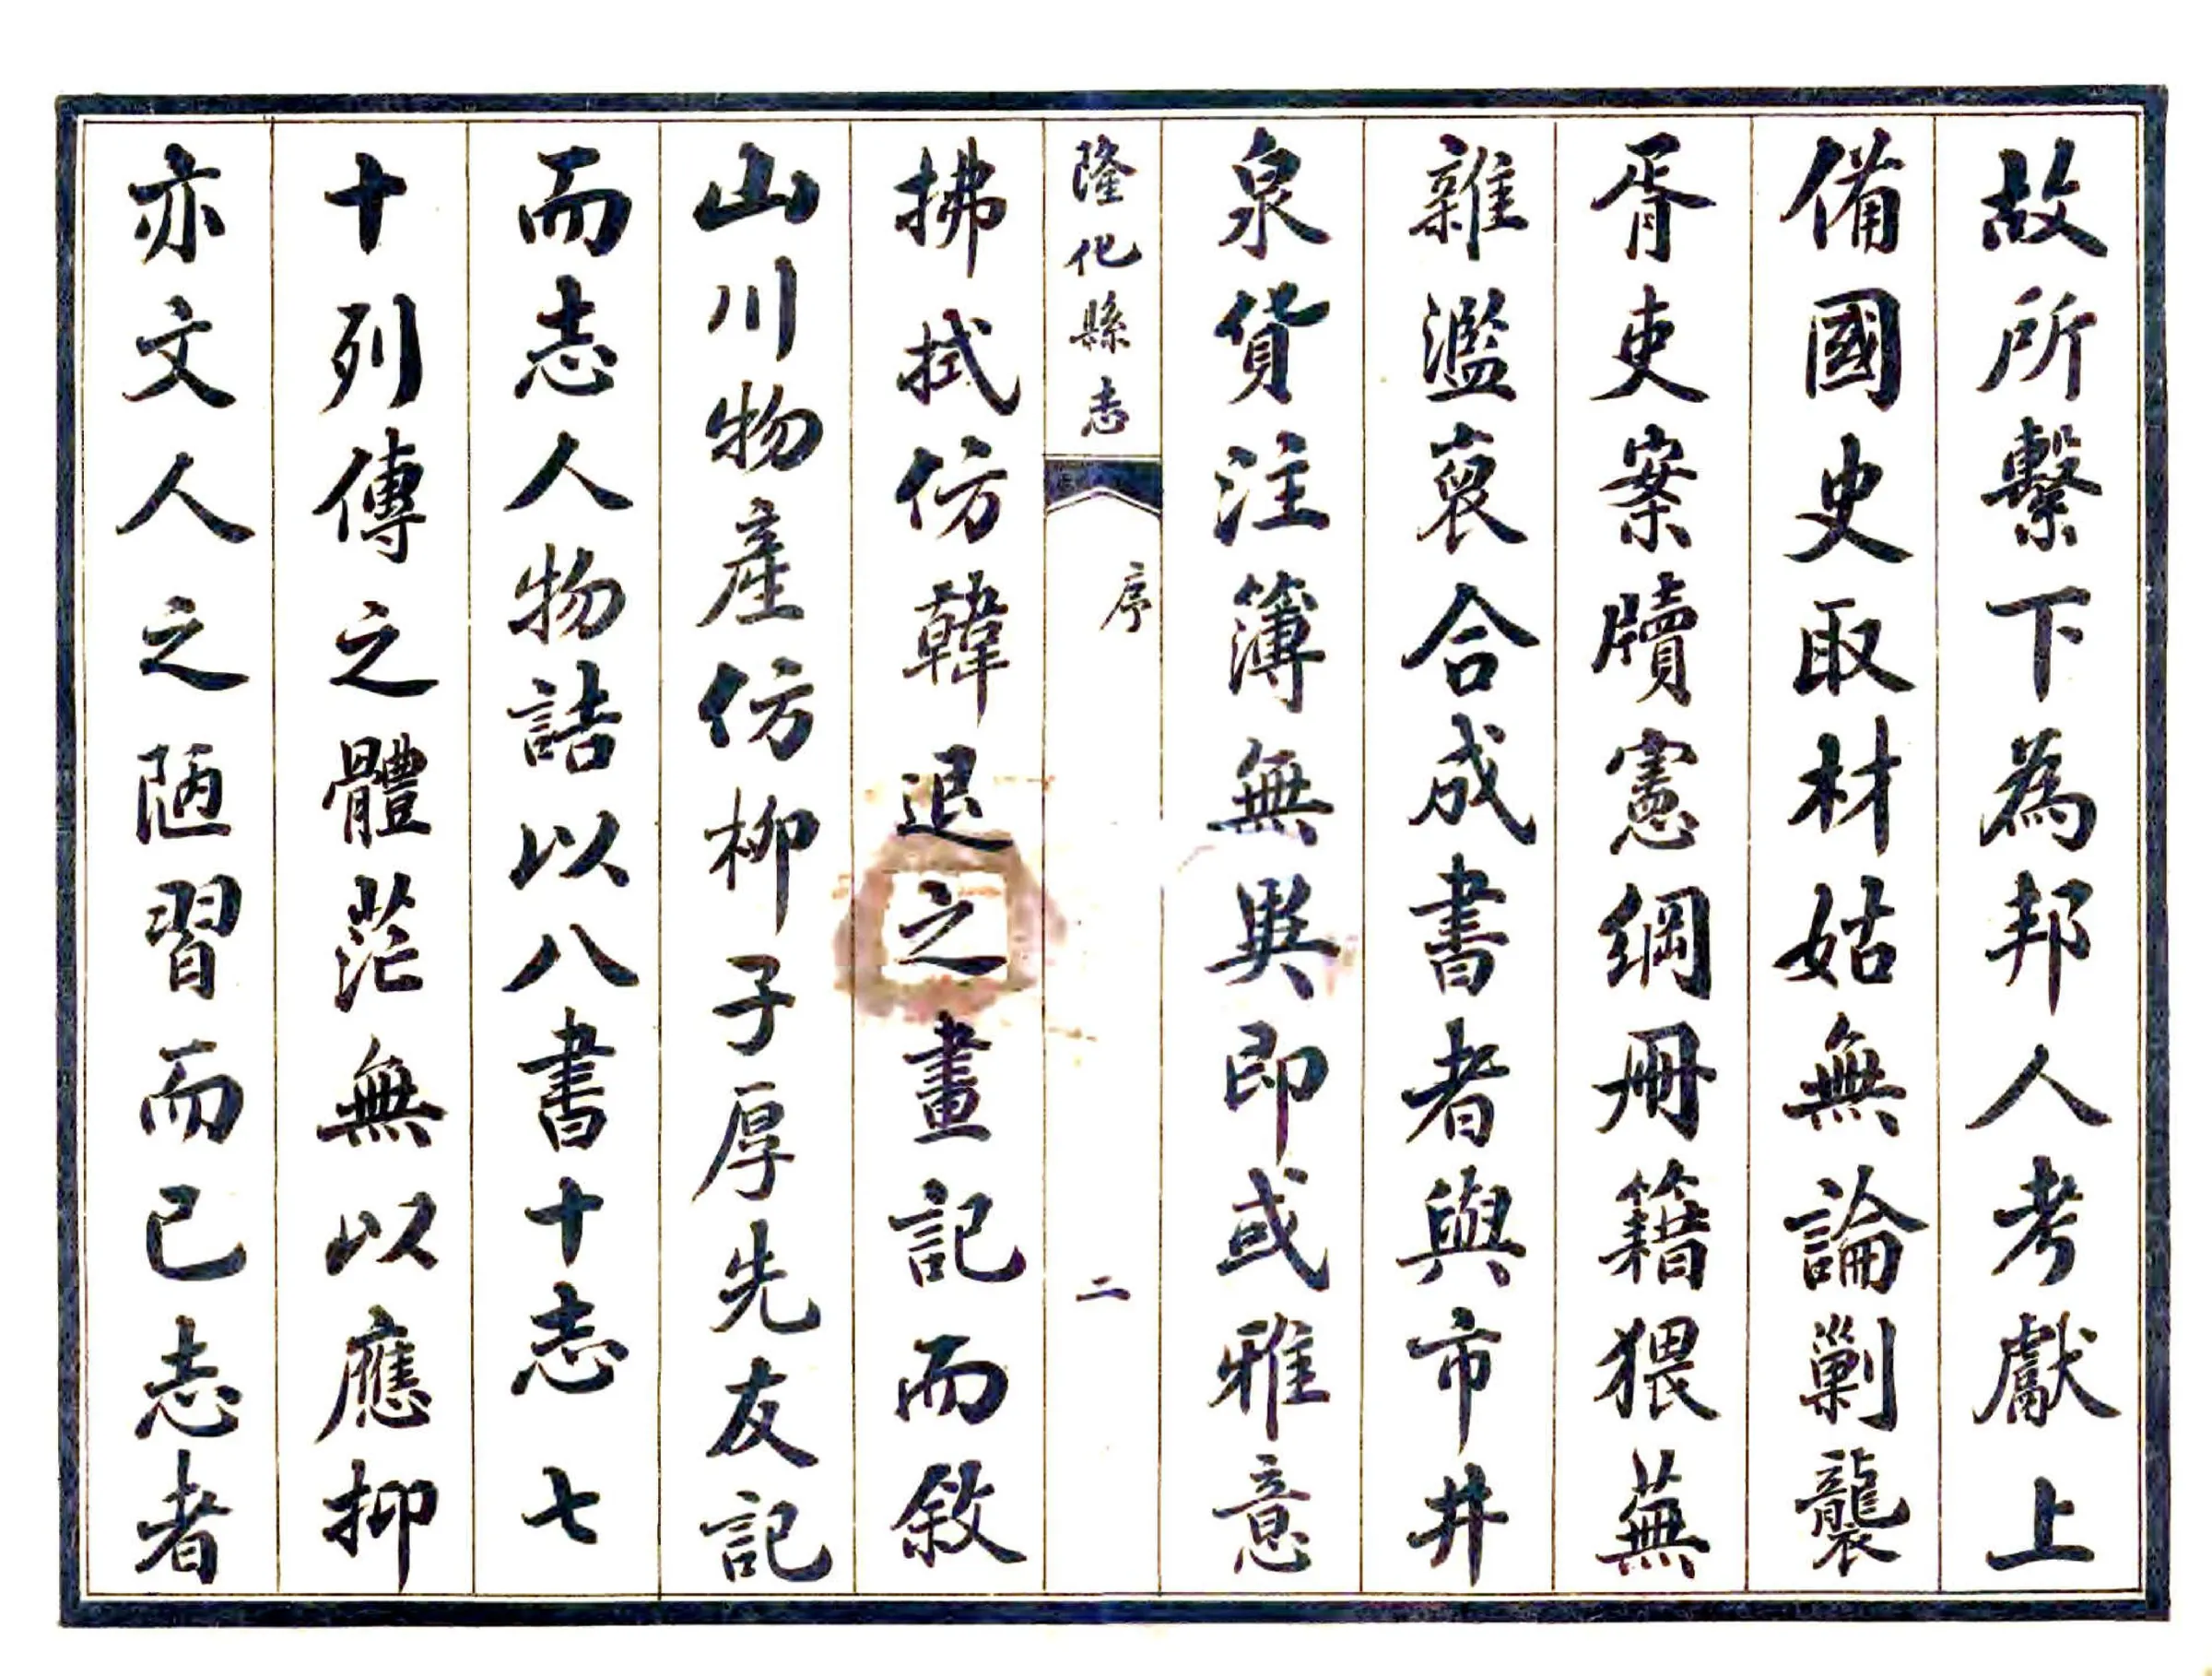 故所繫下為邦人考獻上
備國史取材姑無論剿襲
胥吏案牘憲綱冊籍猥蕪
雜濫裒合成書者與市井
泉貨注簿無異即或雅意
隆化縣志
序
二
拂拭仿韓退之畫記而敘
山川物產仿柳子厚先友記
而志人物詰以八書十志七
十列傳之體茫無以應抑
亦文人之陋習而已志者